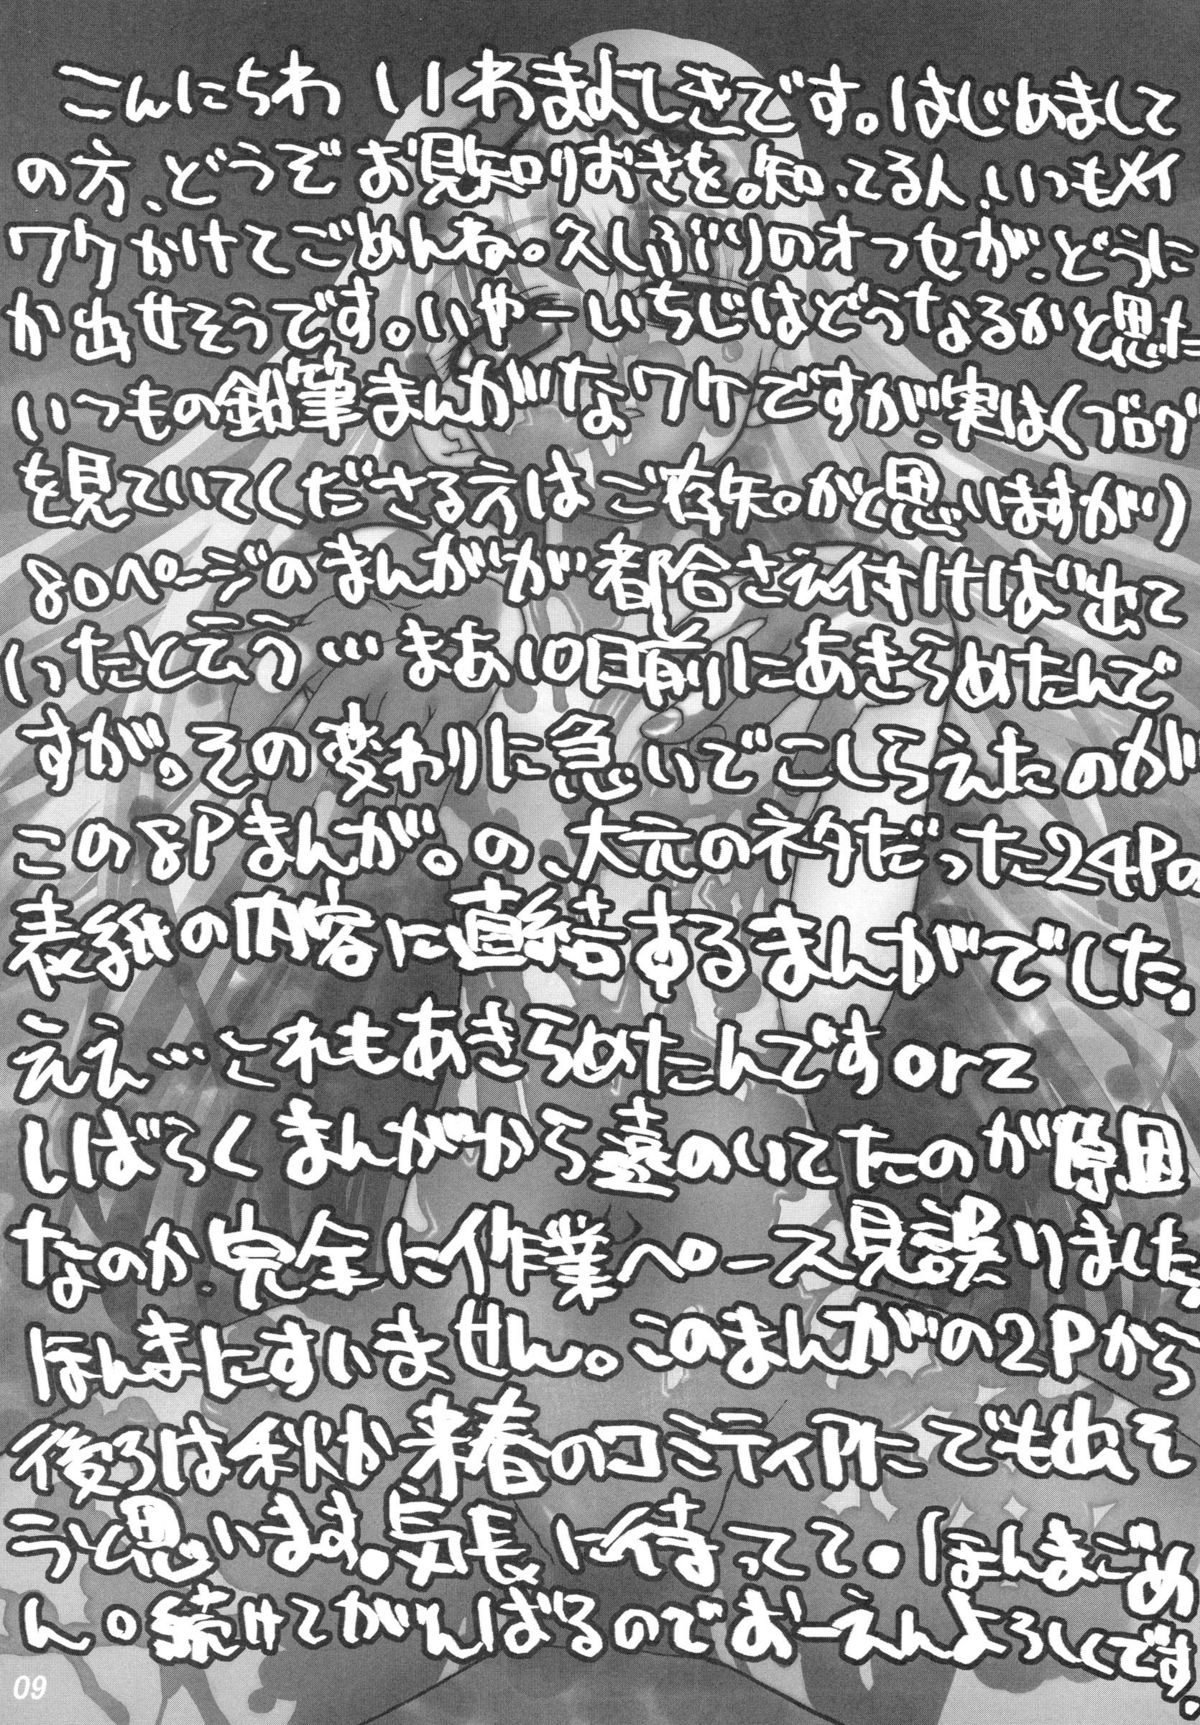 こんにちわ いわまよしきです。はじめまして
の方、どうぞお見知りおきを。知ってる人、いつもメイ
ワクかけてごめんね。久しぶりのオフセが、どうに
か出せそうです。いやーいちじはどうなるかと思た
いつもの鉛筆まんがなワケですが、実は(ブログ
を見ていてくださる方はご存知かと思いますが)
80ページのまんがが都合さえ付けば出て
いったと云う…まあ10日前にあきらめたんで
すが。その変わりに急いでこしらえたのが
この8Pまんが。の、大元のネタだった24Pの
表紙の内容に直結するまんがでした.
ええ…これもあきらめたんですorz
しばらくまんがから遠のいてたのが原因
なのか、完全に作業ペース見誤りました。
ほんまにすいません。このまんがの2Pから
後ろは秋か来春のコミティアにでも出そ
うと思います。気長に待ってて。ほんまごめ
ん。続けてがんばるのでおーえんよろしくです.
09